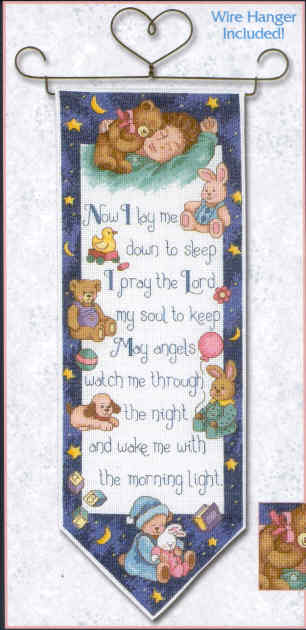 Wire Hanger
Included!
Now I lay me
down to sleep
I pray the Lord
my soul to keep
May angels
watch me through
the night
and wake me with
the morning light.